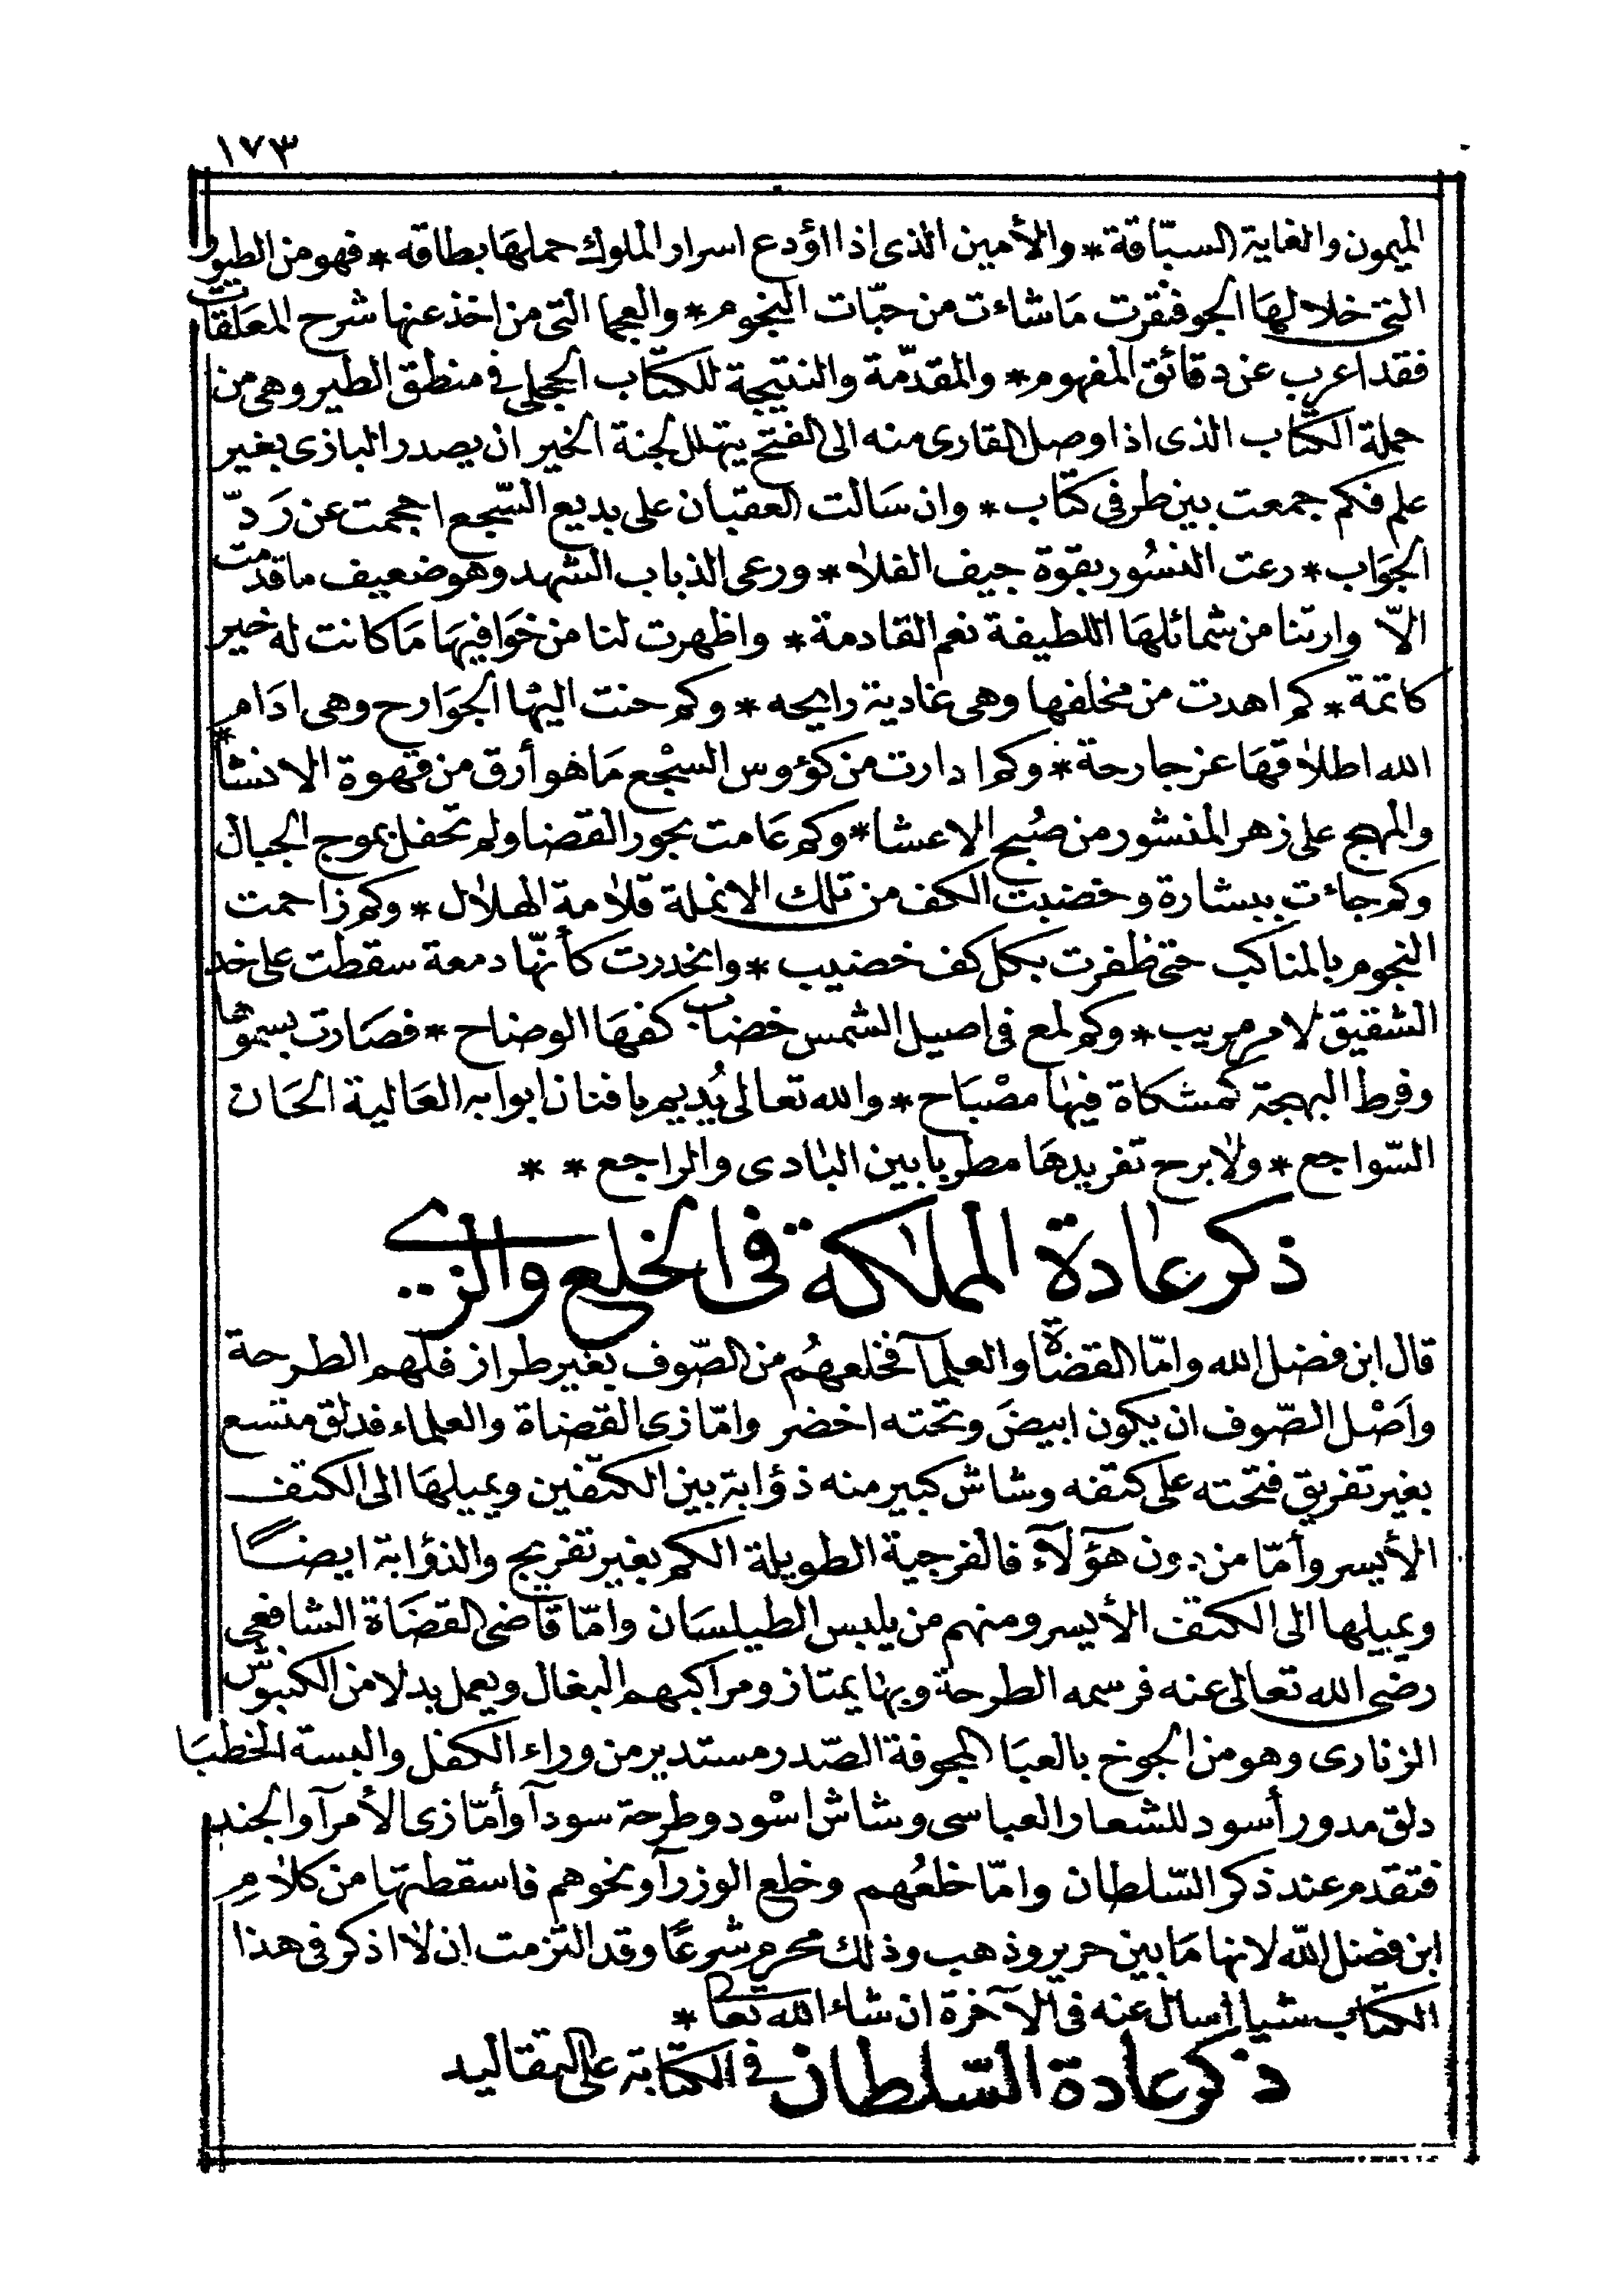 ١٧٣
الميمون والغاية السبّاقة * والأمين الذى اذا اؤدع اسرار الملوك حملها بطاقه * فهو من الطيور
التى خلالها الجو فنقرت ما شاءت من حبّات النجوم * والعجما التى من اخذ عنها شرح المعلقات
فقد اعرب عن دقائق المفهوم * والمقدّمة والنتيجة للكتاب الحجلى فى منطق الطير وهى من
حملة الكتاب الذى اذا وصل القارى منه الى الفتح يتهلل لجنة الخير ان يصدر البازى بغير
علم فكم جمعت بين طرفى كتاب * وان سالت العقبان على بديع السّجع احجمت عن ردّ
الجواب * رعت النسُور بقوة جيف الفلا * ورعى الذباب الشهد وهو ضعيف ما قدمت
الاّ وارتنا من شمائلها اللطيفة نعم القادمة * واظهرت لنا من خوافيها ما كانت له خير
كاتمة * كم اهدت من مخلفها وهى غادية رايحه * وكم حنت اليها الجوارح وهى ادام
الله اطلاقها عن جارحة * وكم ادارت من كؤوس السجْع ما هو أرق من قهوة الانشا *
والمبهج على زهر المنشور من صُبح الاعشا * وكم عامت بحور الفضا ولم تحفل بموج الجبال
وكم جاءت ببشارة وخضبت الكف من تلك الانملة قلامة الهلال * وكم زاحمت
النجوم بالمناكب حتى ظفرت بكل كف خضيب * وانحدرت كأنّها دمعة سقطت على خد
الشقيق لامر مريب * وكم لمع فى اصيل الشمس خضاب كفها الوضاح * فصارت بسموّها
وفرط البهجة كمشكاة فيها مصْباح * والله تعالى يُديم بافنان ابوابه العالية الحان
السّواجع * ولا برح تغريدها مطربا بين البادى والراجع * *
ذكر عادة المملكة فى الخلع والزى
قال ابن فضل الله وامّا القضاة والعلمآ فخلعهُم من الصّوف بغير طراز فلهم الطرحة
واَصْل الصّوف ان يكون ابيض وتحته اخضر وامّا زى القضاة والعلماء فدلق متسع
بغير تفريق فتحته على كتفه وشاش كبير منه ذؤابة بين الكتفين ويميلها الى الكتف
الأيسر وأمّا من دون هؤلآء فالفرجية الطويلة الكم بغير تفريج والذؤابة ايضًا
ويميلها الى الكتف الأيسر ومنهم من يلبس الطيلسان وامّا قاضى القضاة الشافعى
رضى الله تعالى عنه فرسمه الطرحة وبها يمتاز ومراكبهم البغال ويعمل بدلا من الكنبوش
الزنارى وهو من الجوخ بالعبا المجوفة الصّدر مستدير من وراء الكفل والبسة الخطبا
دلق مدور أسود للشعار العباسى وشاش اسْود وطرحة سودآ وأمّا زى الأمرآ والجند
فتقدم عند ذكر السّلطان وامّا خلعُهم وخلع الوزرآ ونحوهم فاسقطتها من كلام
ابن فضل الله لانها ما بين حرير وذهب وذلك محرم شرعًا وقد التزمت ان لا اذكر فى هذا
الكتاب شيا اسال عنه فى الآخرة ان شاء الله تعالى *
ذكر عادة السّلطان فى الكتابة على التقاليد